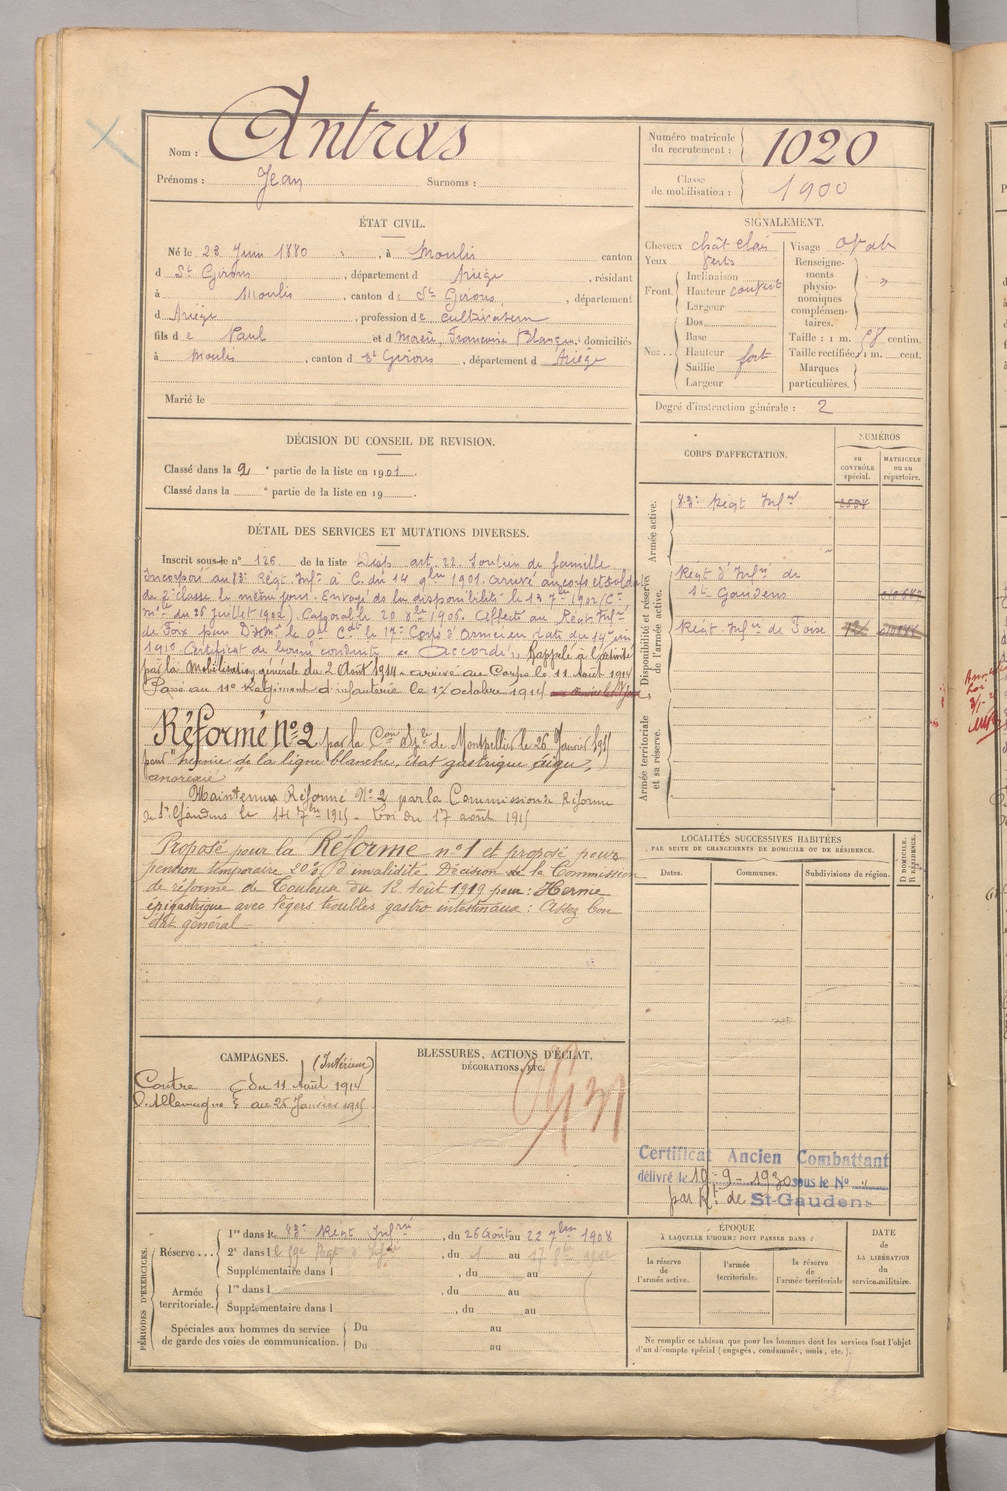 Nom : Antras
Prénoms : Jean Surnoms :
Numéro matricule du recrutement : 1020
Classe de mobilisation : 1900
ÉTAT CIVIL.
Né le 23 Juin 1880, à Moulis canton
d St Girons, département d Ariège, résidant
à Moulis, canton de St Girons, département
d Ariège, profession de cultivateur
fils de Paul et d Françoise domiciliés
à Moulis, canton d St Girons, département d Ariège
Marié le
SIGNALEMENT.
Cheveux chât clair
Yeux verts
Front. Inclinaison
Hauteur
Largeur
Nez... Dos
Base
Hauteur fort
Saillie
Largeur
Visage ovale
Renseignements physionomiques complémentaires. "
Taille : 1 m. 58 centim.
Taille rectifiée : 1 m. cent.
Marques particulières.
Degré d'instruction générale : 2
DÉCISION DU CONSEIL DE REVISION.
Classé dans la 2e partie de la liste en 1901.
Classé dans la e partie de la liste en 19 .
DÉTAIL DES SERVICES ET MUTATIONS DIVERSES.
Inscrit sous le n° 126 de la liste Disp. art. 22. Soutien de famille
Incorporé au 83e Régt Infie à C. du 14 9bre 1901. Arrivé au corps et soldat
de 2e classe le même jour. Envoyé en disponibilité le 19 7bre 1902 (C.
mlle du 26 Juillet 1902). Caporal le 20 8bre 1906. Affecté au Régt Infie
de Foix par Don de Mr le Gal Ct le 17e Corps d'Armée en date du 14 juin
1910 Certificat de bonne conduite " Accordé ". Rappelé à l'activité
par la Mobilisation générale du 2 Août 1914 - arrivé au Corps le 11 Août 1914
Passé au 11e Régiment d'infanterie le 17 octobre 1914
Réformé N° 2 par la Con Sple de Montpellier le 26 Janvier 1915
pour "hernie de la ligne blanche, état gastrique aigu,
anorexie"
Maintenu Réformé N° 2 par la Commission de Réforme
de St Gaudens le 14 7bre 1915 - Loi du 17 août 1915
Proposé pour la Réforme n° 1 et proposé pour
pension temporaire 20% d'invalidité. Décision de la Commission
de réforme de Toulouse du 12 Août 1919 pour : Hernie
épigastrique avec légers troubles gastro intestinaux : Assez bon
état général
CORPS D'AFFECTATION.
NUMÉROS
au CONTRÔLE spécial.
MATRICULE ou au répertoire.
Armée active.
83e Régt Infie
Disponibilité et réserve de l'armée active.
Régt d'Infie de
St Gaudens
Régt Infie de Foix
Armée territoriale et sa réserve.
LOCALITÉS SUCCESSIVES HABITÉES
PAR SUITE DE CHANGEMENTS DE DOMICILE OU DE RÉSIDENCE.
Dates.
Communes.
Subdivisions de région.
D DOMICILE. R RÉSIDENCE.
CAMPAGNES.
(Intérieur)
Contre du 11 Août 1914
l'Allemagne au 26 Janvier 1915
BLESSURES, ACTIONS D'ÉCLAT,
DÉCORATIONS, ETC.
Certificat Ancien Combattant
délivré le 10-9-1930 sous le N°
par Rt de St-Gaudens
PÉRIODES D'EXERCICES.
Réserve... 1re dans le 83e Régt Infie, du 26 Août au 22 7bre 1908
2e dans l , du 1 au 17 8bre
Supplémentaire dans l , du au
Armée territoriale. 1re dans l , du au
Supplémentaire dans l , du au
Spéciales aux hommes du service de garde des voies de communication. Du au
Du au
ÉPOQUE
À LAQUELLE L'HOMME DOIT PASSER DANS :
la réserve de l'armée active.
l'armée territoriale.
la réserve de l'armée territoriale
DATE de LA LIBÉRATION du service militaire.
Ne remplir ce tableau que pour les hommes dont les services font l'objet
d'un décompte spécial (engagés, condamnés, omis, etc.).